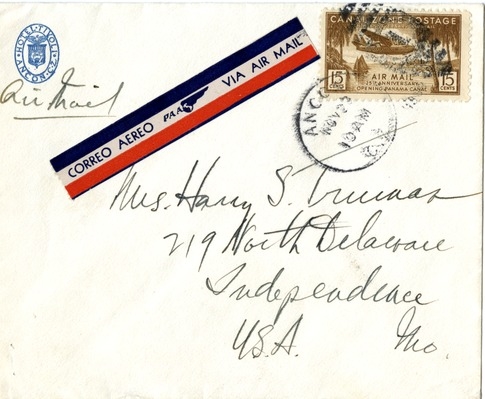 HOTEL TIVOLI
Air Mail
CORREO AEREO PAA VIA AIR MAIL
CANAL ZONE POSTAGE
AIR MAIL
15TH ANNIVERSARY
OPENING PANAMA CANAL
15 CENTS
15 CENTS
ANCO
NOV 23
10 AM
Mrs. Harry S. Truman
219 North Delaware
Independence
U.S.A. Mo.